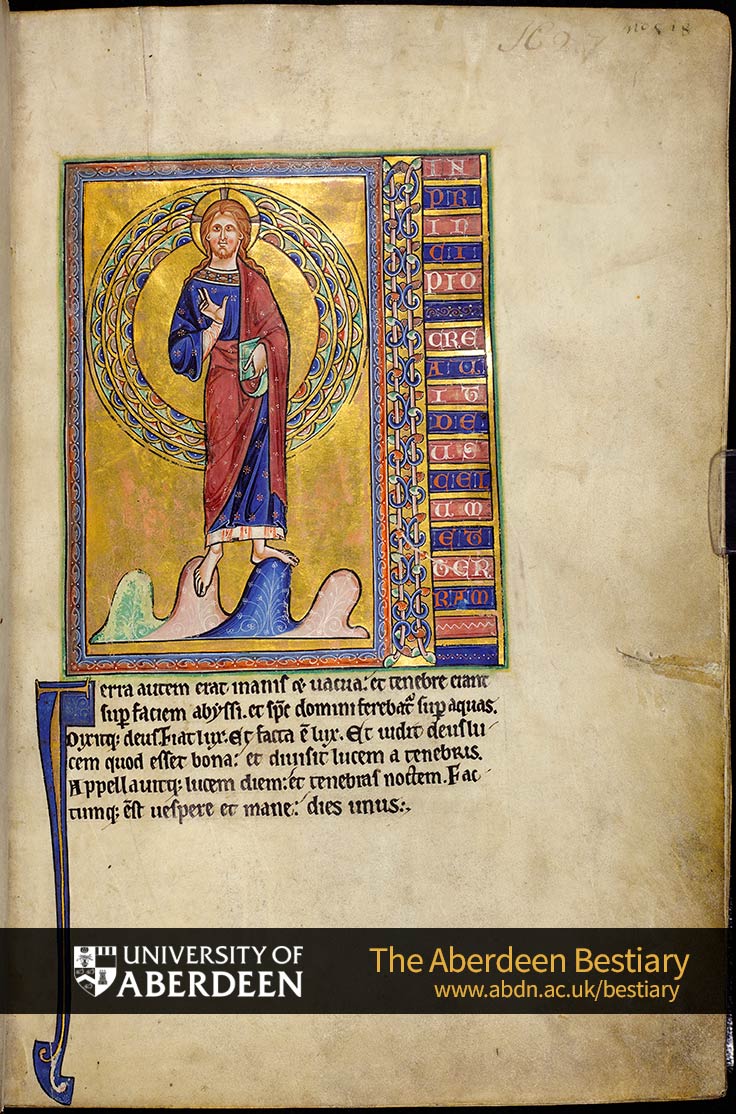 nos 18
IN
PR
IN
CI
PIO
CRE
AU
IT
DE
US
CEL
UM
ET
TER
RAM
Terra autem erat inanis & vacua: et tenebre erant
sup faciem abyssi. et spc domini ferebat sup aquas.
Dixitq; deus Fiat lux. Et facta ē lux. Et vidit deus lu
cem quod esset bona: et divisit lucem a tenebris.
Appellavitq; lucem diem: et tenebras noctem. Fac
tumq; ēst vespere et mane: dies unus:,
UNIVERSITY OF
ABERDEEN
The Aberdeen Bestiary
www.abdn.ac.uk/bestiary